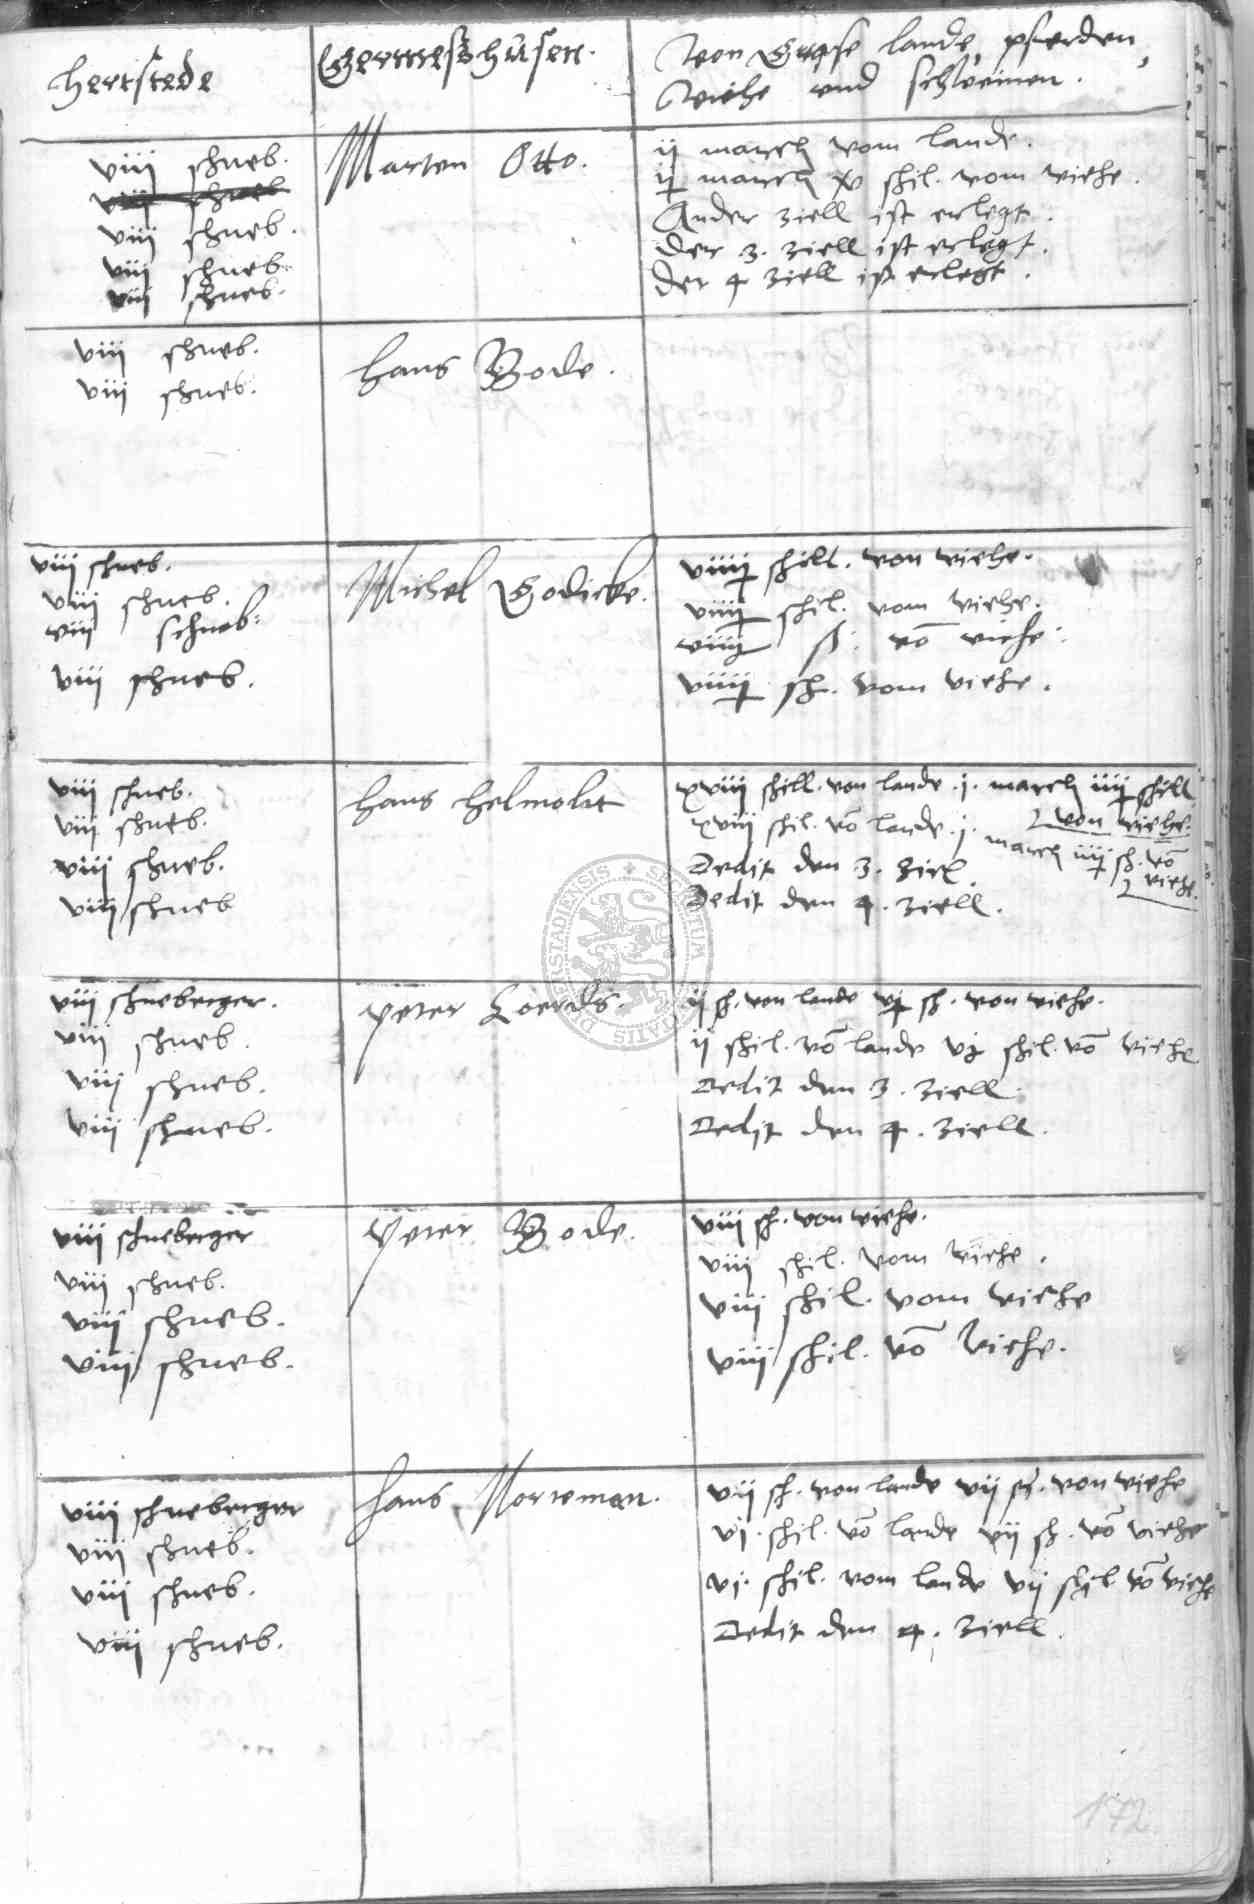 hertstede
Germeshusen.
Von Huse lande, pferden,
Viehe und schweinen.
viii schneb.
viii schneb
viii schneb.
viii schneb.
viii schneb.
Marten Otto.
ij march vom lande.
ij march xv schil. vom viehe.
Ander ziell ist erlegt.
Der 3. ziell ist erlegt.
Der 4 ziell ist erlegt.
viij schneb.
viij schneb.
Hans Bode.
viij schneb.
viij schneb.
viij schneb:
viij schneb.
Michel Godicke.
viiij schill. von viehe.
viiij schil. vom viehe.
viiij ß. võ viehe.
viiij sch. vom viehe.
viij schneb.
viij schneb.
viij schneb.
viij schneb
Hans Helmolt
xviij schill. von lande .j. march iiij schill
von viehe.
xviij schil. võ lande .j. march iiij sch. võ
viehe.
Dedit den 3. Ziel.
Dedit den 4. ziell.
viij schneberger.
viij schneb.
viij schneb.
viij schneb.
Peter Loerds.
ij sch. von lande vj sch. von viehe.
ij schil. võ lande vj schil. võ viehe
Dedit den 3. ziell.
Dedit den 4. ziell.
viij schneberger
viij schneb.
viij schneb.
viij schneb.
Peter Bode.
viij sch. von viehe.
viij schil. vom viehe.
viij schil. vom viehe
viij schil. võ viehe.
viij schneberger
viij schneb.
viij schneb.
viij schneb.
Hans Norteman.
vij sch. von lande vij sch. von viehe
vj. schil. võ lande vij sch. võ viehe
vj. schil. vom lande vij schil. võ viehe
Dedit den 4. ziell.
172